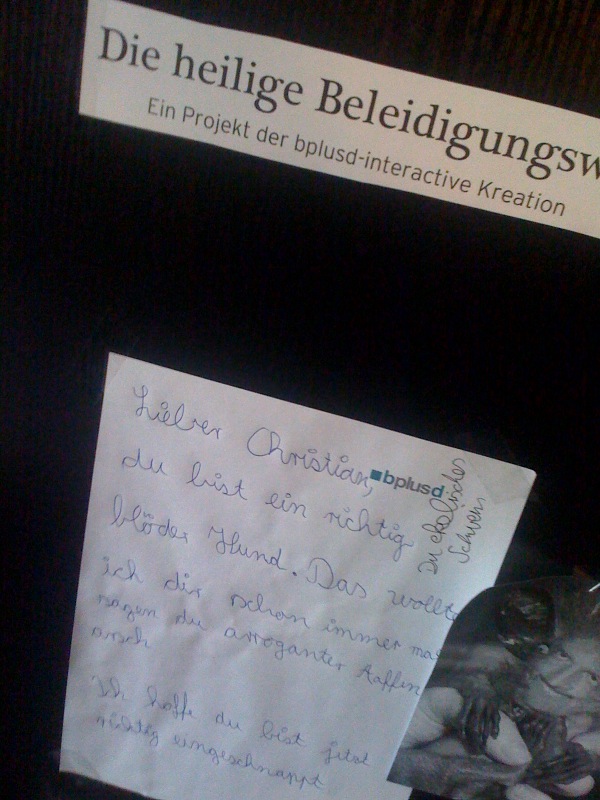 Die heilige Beleidigungsw
Ein Projekt der bplusd-interactive Kreation
Lieber Christian,
bplusd
du bist ein richtig
blöder Hund. Das wollte
ich dir schon immer ma
sagen du arroganter Aaffen
arsch
Ich hoffe du bist jetzt
richtig eingeschnappt
Du ekelisches
Schwein